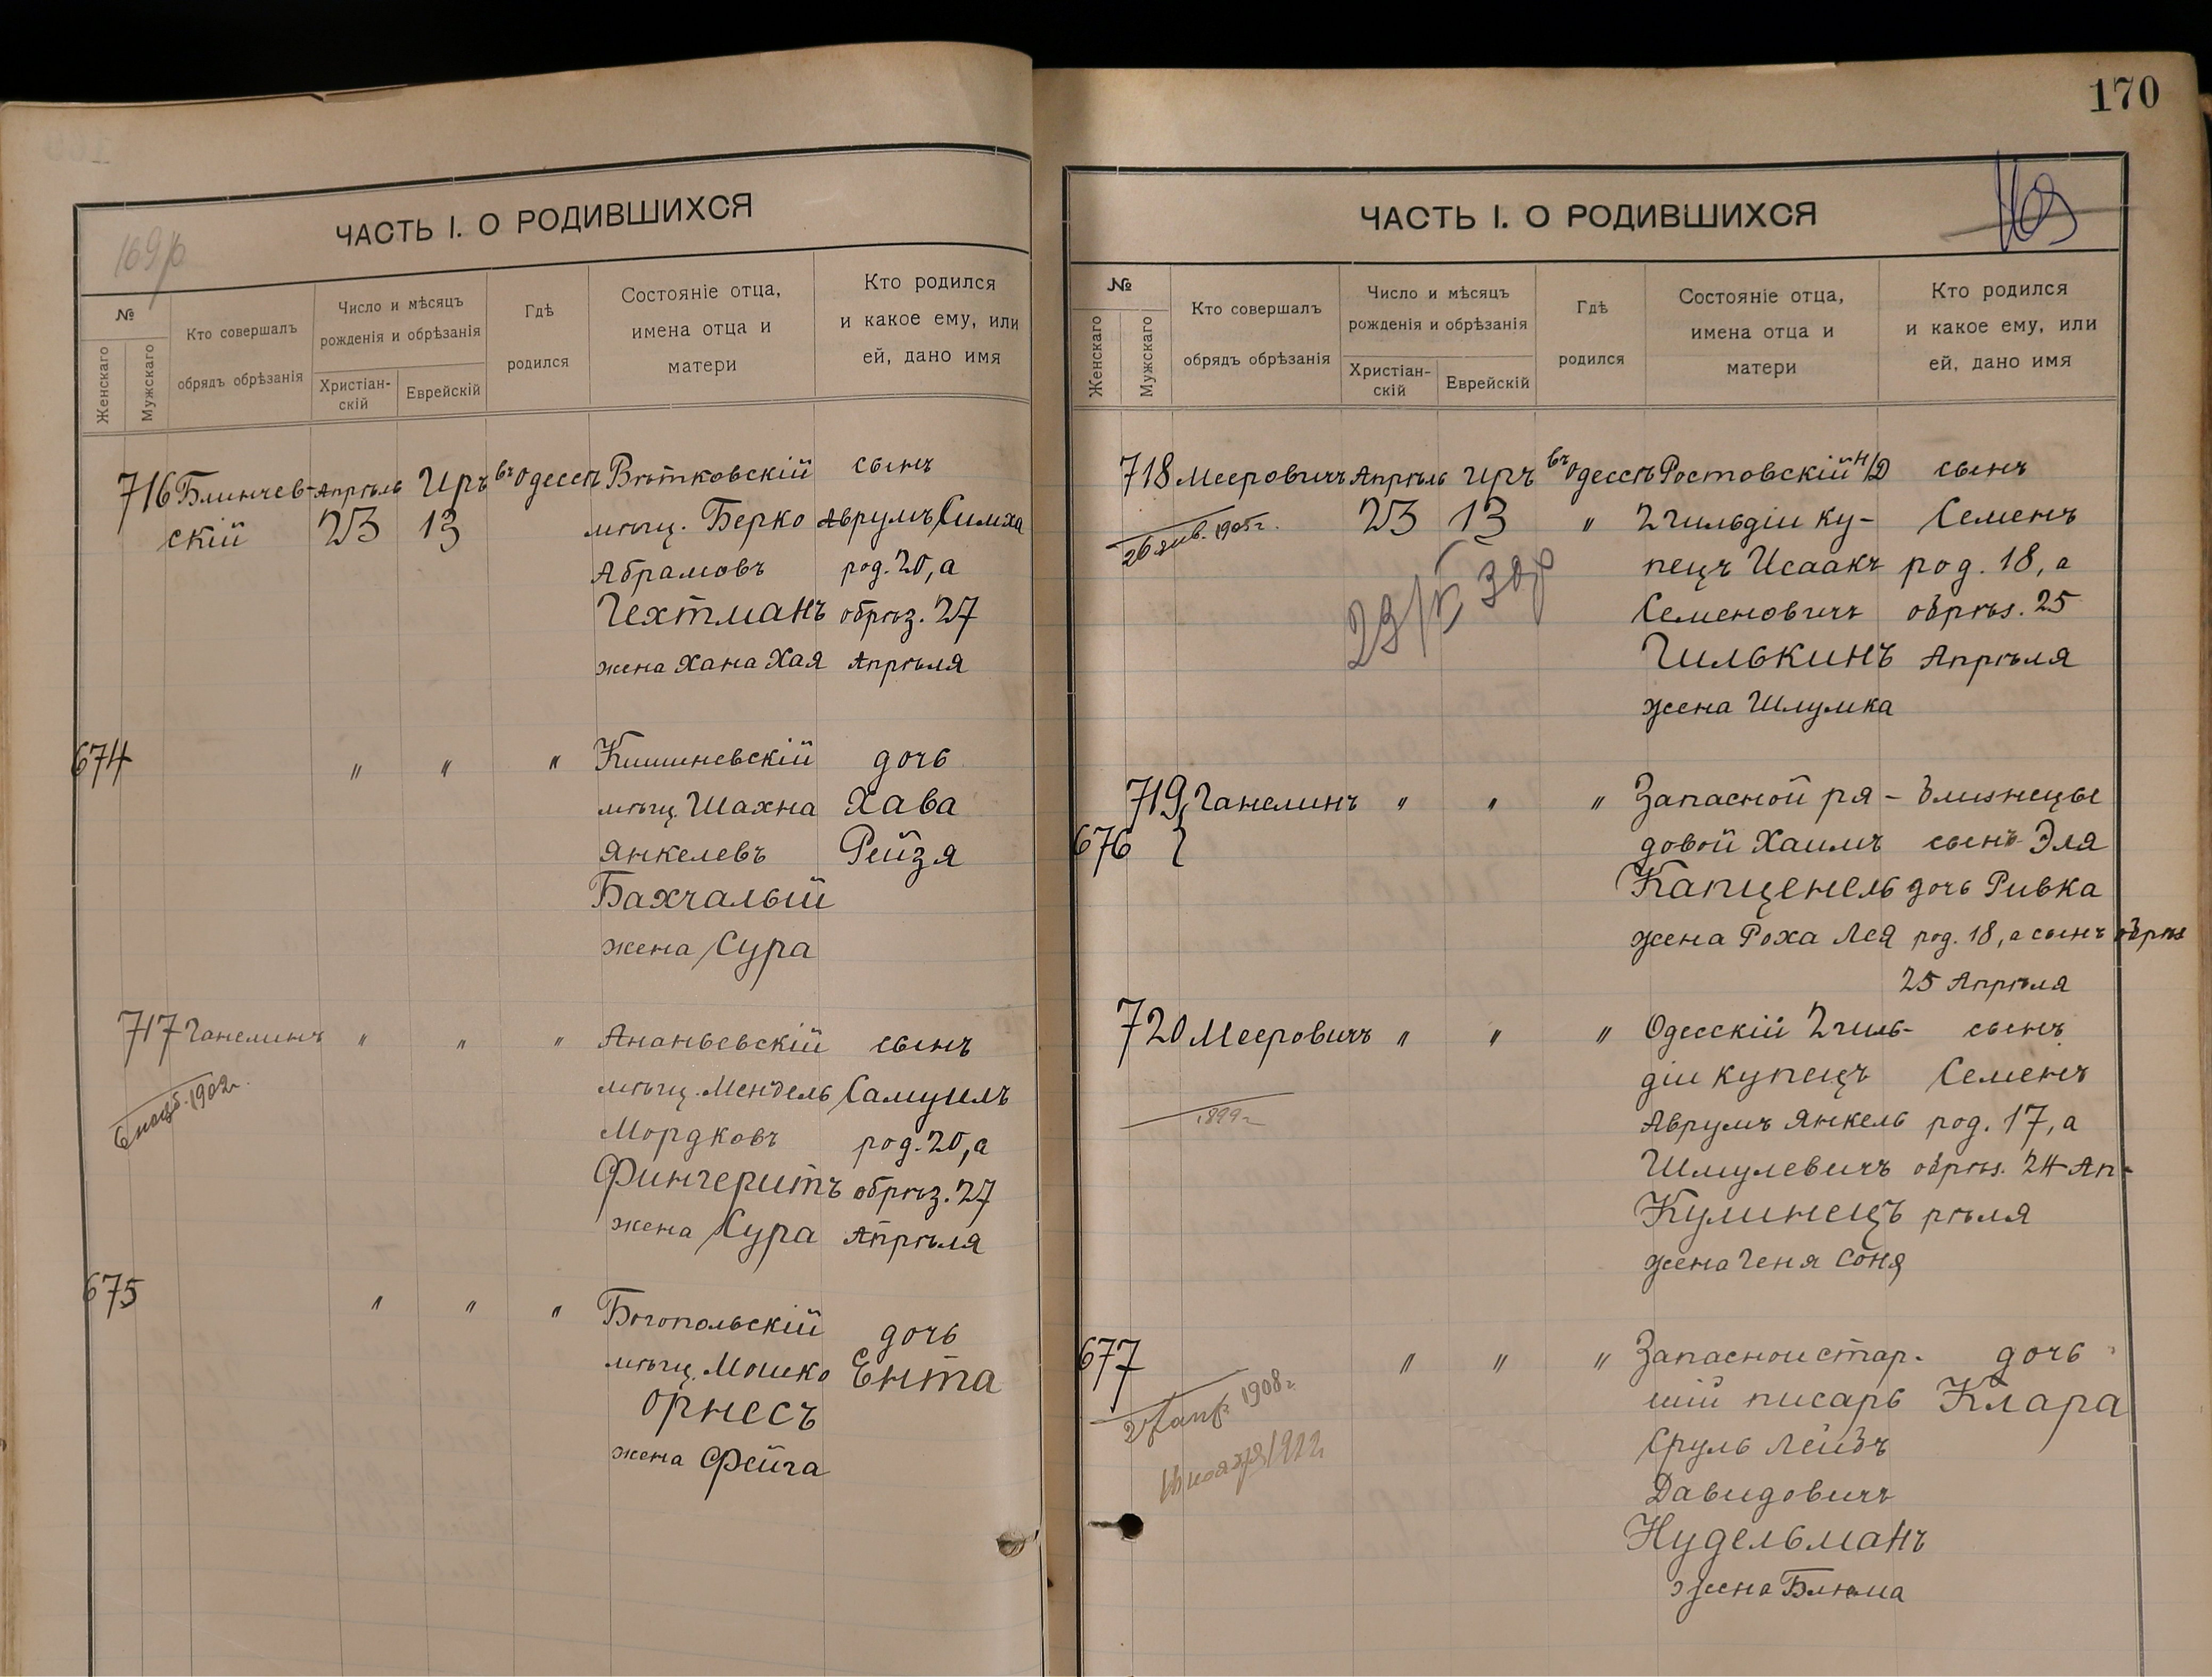 169 р
ЧАСТЬ I. О РОДИВШИХСЯ
№
Женскаго
Мужскаго
Кто совершалъ
обрядъ обрѣзанія
Число и мѣсяцъ
рожденія и обрѣзанія
Христіан-
скій
Еврейскій
Гдѣ
родился
Состояніе отца,
имена отца и
матери
Кто родился
и какое ему, или
ей, дано имя
716 Блинчев- Апрѣль Иръ въ Одессѣ Вѣтковскій сынъ
скій 23 13 мѣщ. Берко Аврумъ Симха
Абрамовъ род. 20, а
Гехтманъ обрѣз. 27
жена Хана Хая Апрѣля
674 " " " Кишиневскій дочь
мѣщ. Шахна Хава
Янкелевъ Рейзя
Бахчалый
жена Сура
717 Ганелинъ " " " Ананьевскій сынъ
мѣщ. Мендель Самуилъ
1902г.
Мордковъ род. 20, а
Фингеритъ обрѣз. 27
жена Сура Апрѣля
675 " " " Богопольскій дочь
мѣщ. Мошко Ента
Орнесъ
жена Фейга
170
ЧАСТЬ I. О РОДИВШИХСЯ
№
Женскаго
Мужскаго
Кто совершалъ
обрядъ обрѣзанія
Число и мѣсяцъ
рожденія и обрѣзанія
Христіан-
скій
Еврейскій
Гдѣ
родился
Состояніе отца,
имена отца и
матери
Кто родился
и какое ему, или
ей, дано имя
718 Мееровичъ Апрѣль Иръ въ Одессѣ Ростовскій н/Д сынъ
26 янв. 1905г. 23 13 " 2 гильдіи ку- Семенъ
пецъ Исаакъ род. 18, а
Семеновичъ обрѣз. 25
Гилькинъ Апрѣля
жена Шлумка
719 Ганелинъ " " " Запасной ря- близнецы
676 } довой Хаимъ сынъ Эля
Капценель дочь Ривка
жена Роха Лея род. 18, а сынъ обрѣз
25 Апрѣля
720 Мееровичъ " " " Одесскій 2 гиль- сынъ
діи купецъ Семенъ
1899г Аврумъ Янкель род. 17, а
Шмулевичъ обрѣз. 24 Ап-
Кулинецъ рѣля
жена Геня Соня
677 " " " Запасной стар- дочь
шій писарь Клара
1908г.
Сруль Лейбъ
Давидовичъ
Нудельманъ
жена Блюма